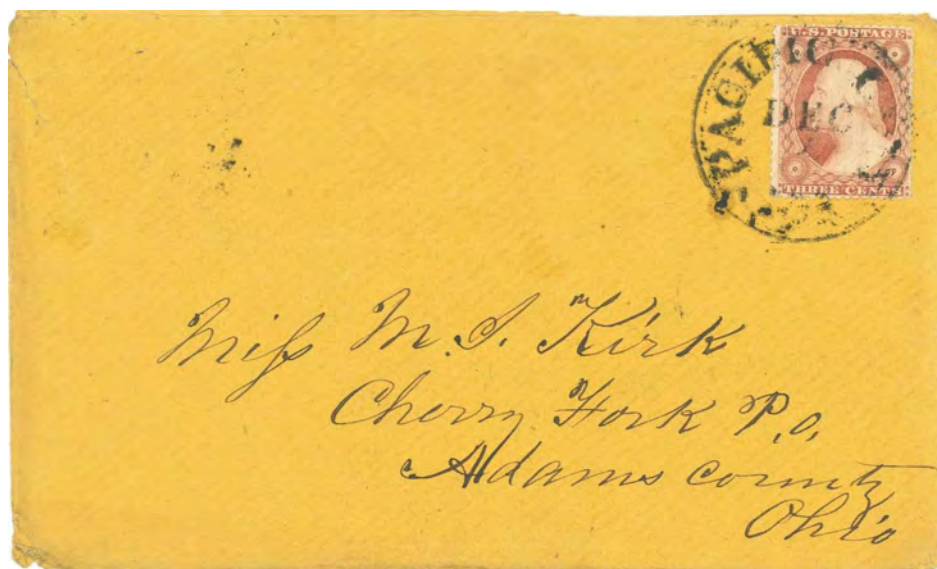 U.S. POSTAGE
THREE CENTS
PACIFIC
DEC
Miſs M. I. Kirk
Cherry Fork P.O.
Adams County
Ohio